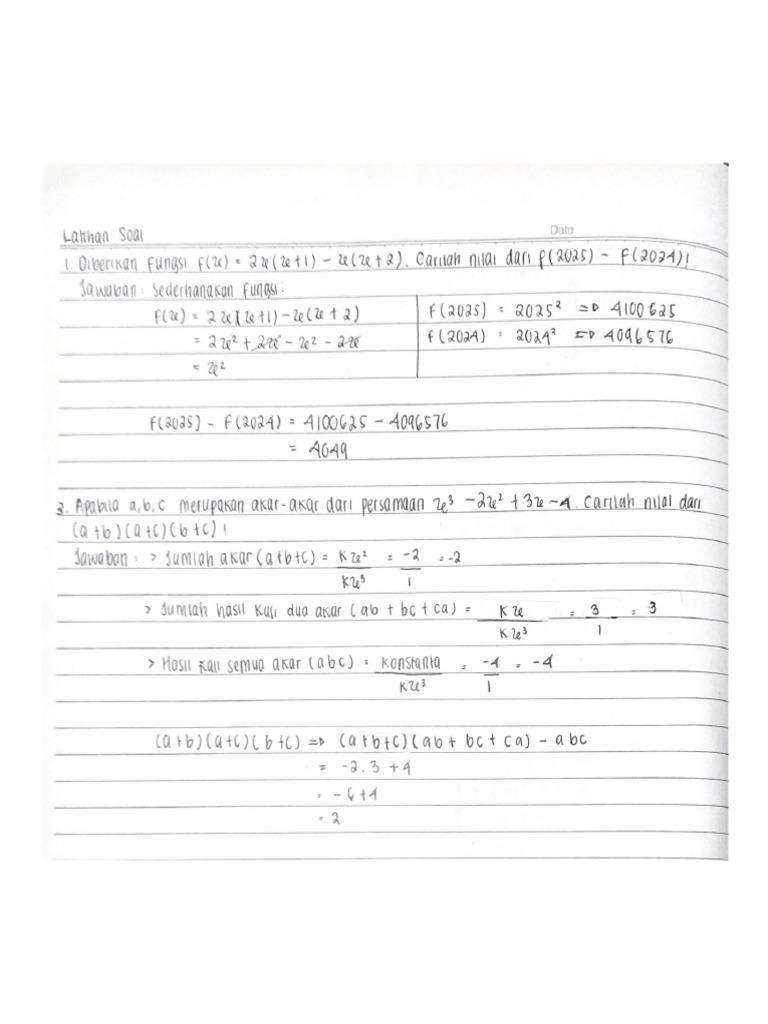 Latihan Soal
Date
1. Diberikan fungsi f(x) = 2x(x+1) - x(x+2). Carilah nilai dari f(2025) - f(2024)!
Jawaban : Sederhanakan fungsi :
f(x) = 2x(x+1) - x(x+2)
= 2x² + 2x - x² - 2x
= x²
f(2025) = 2025² => 4100625
f(2024) = 2024² => 4096576
f(2025) - f(2024) = 4100625 - 4096576
= 4049
2. Apabila a, b, c merupakan akar-akar dari persamaan x³ - 2x² + 3x - 4. Carilah nilai dari
(a+b)(a+c)(b+c)!
Jawaban : > Jumlah akar (a+b+c) = Kx²/Kx³ = -2/1 = -2
> Jumlah hasil kali dua akar (ab + bc + ca) = Kx/Kx³ = 3/1 = 3
> Hasil kali semua akar (abc) = Konstanta/Kx³ = -4/1 = -4
(a+b)(a+c)(b+c) => (a+b+c)(ab + bc + ca) - abc
= -2.3 + 4
= -6+4
= 2